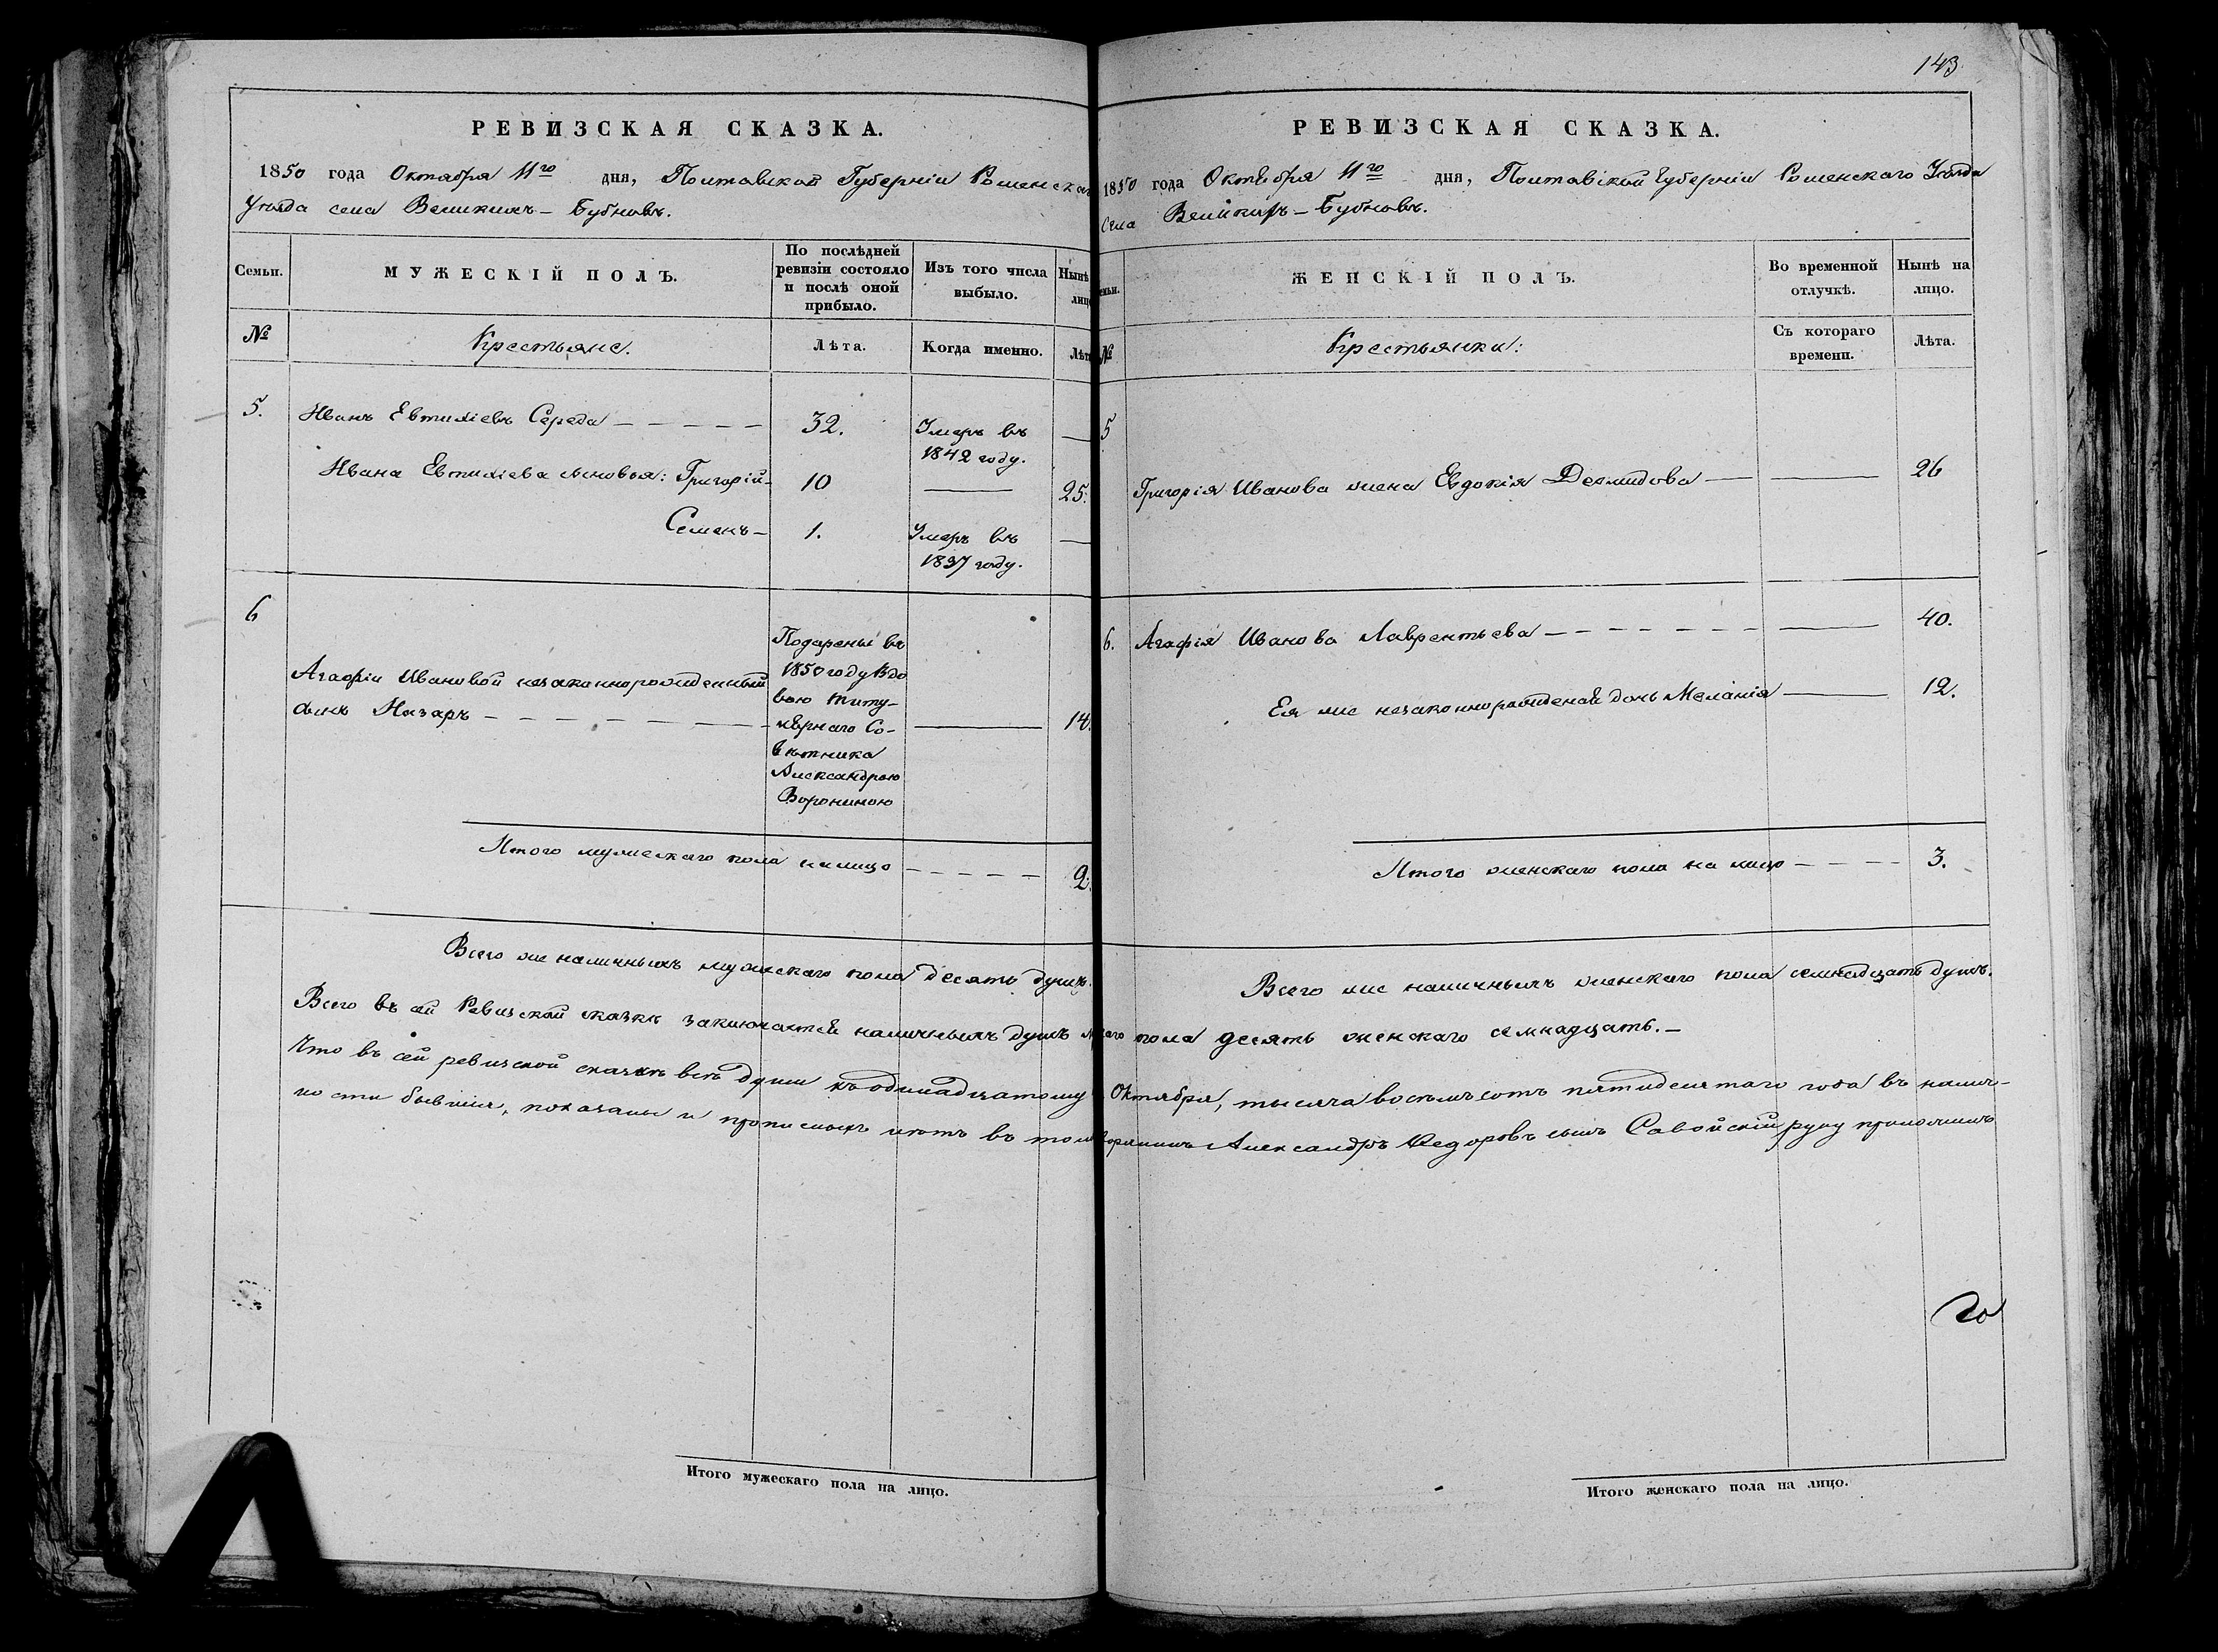 РЕВИЗСКАЯ СКАЗКА.
1850 года Октября 11го дня, Полтавской Губерніи Роменскаго
Уѣзда села Великихъ-Бубновъ.
Семьи.
МУЖЕСКІЙ ПОЛЪ.
По послѣдней
ревизіи состояло
и послѣ оной
прибыло.
Изъ того числа
выбыло.
Нынѣ
лицо
№
Крестьяне.
Лѣта.
Когда именно.
Лѣта
5.
Иванъ Евтихіевъ Середа
32.
Умеръ въ
1842 году.
Ивана Евтихіева сыновья: Григорій
10
25.
Семенъ
1.
Умеръ въ
1837 году.
6
Агафіи Ивановой незаконнорожденный
сынъ Назаръ
Подарены въ
1850 году Вдо
вою Титу-
лярнаго Со-
вѣтника
Александрою
Ворониною
14.
Итого мужескаго пола налицо
2.
Всего же наличныхъ мужскаго пола десять душъ.
143
РЕВИЗСКАЯ СКАЗКА.
1850 года Октября 11го дня, Полтавской Губерніи Роменскаго Уѣзда
Села Великихъ-Бубновъ.
семьи.
ЖЕНСКІЙ ПОЛЪ.
Во временной
отлучкѣ.
Нынѣ на
лицо.
№
Крестьянки:
Съ котораго
времени.
Лѣта.
5
Григорія Иванова жена Евдокія Демидова
26
6.
Агафія Иванова Лаврентьева
40.
Ея же незаконнорожденая дочь Меланія
12.
Итого женскаго пола на лицо
3.
Всего же наличныхъ женскаго пола семнадцать душъ.
Всего въ сей Ревизской сказкѣ заключается наличныхъ душъ пола десять женскаго семнадцать.-
Что въ сей ревизской сказкѣ всѣ души къ одинадцатому Октября, тысяча восемьсотъ пятидесятаго года въ налич-
ности бывшія, показаны и прописныхъ нѣтъ въ томъ Александръ Федоровъ сынъ Савойскій руку приложилъ
Итого мужескаго пола на лицо.
Итого женскаго пола на лицо.